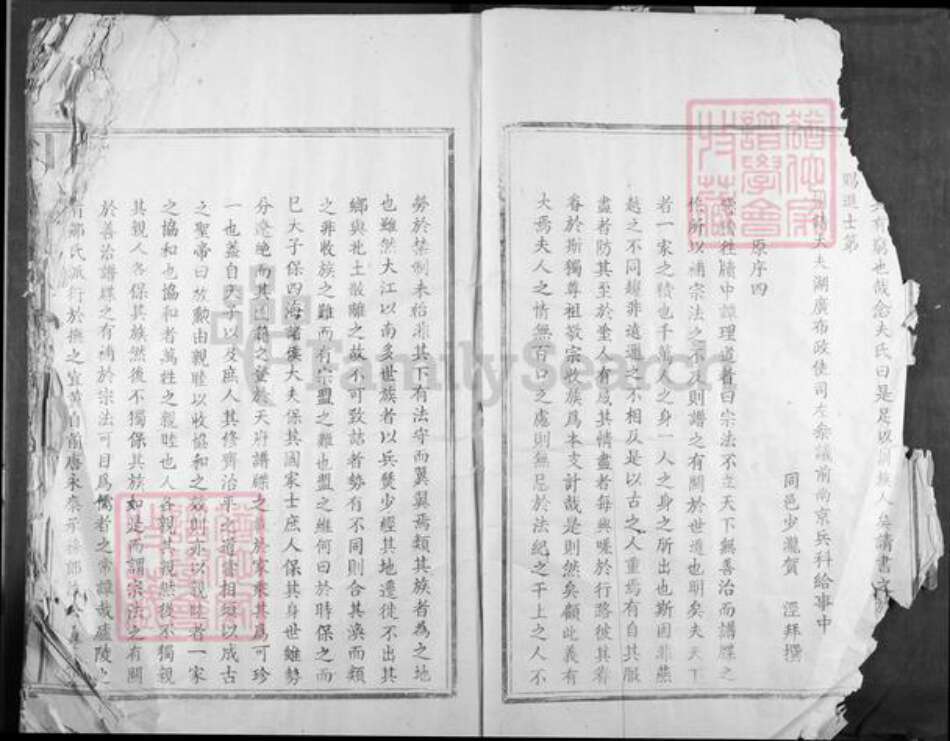 有窮也哉念夫氏曰是足以訓族人矣請書文於
賜進士第
大夫湖廣布政使司左叅議前南京兵科給事中
同邑少瀧賀 涇拜撰
原序四
往牘中譚理道者曰宗法不立天下無善治而譜牒之
脩所以補宗法之不及則譜之有關於世道也明矣夫天下
者一家之積也千萬人之身一人之身之所出也斯固非燕
越之不同趨非遠邇之不相及是以古之人重焉有自其厭
盡者防其至於塗人有感其情盡者每興嗟於行路彼其眷
眷於斯獨尊祖敬宗收族爲本支計哉是則然矣顧此義有
大焉夫人之情無百口之處則無尼於法紀之干上之人不
勞於禁制未格非其下有法守而翼翼焉類其族者為之地
也雖然大江以南多世族者以兵燹少經其地遷徙不出其
鄉與北土散離之故不可致詰者勢有不同則合其渙而類
之非收族之難而有宗盟之難也盟之維何曰於時保之而
已天子保四海諸侯大夫保其國家士庶人保其身世雖勢
分遼絕而其圖籍之登於天府譜牒之藏於家乘其爲可珍
一也蓋自天子以及庶人其修齊治平之道當相須以成古
之聖帝曰放勳由親睦以收協和之效則亦以親睦者一家
之協和也協和者萬姓之親睦也人各親其親然後不獨親
其親人各保其族然後不獨保其族如是而謂宗法之有關
於善治譜牒之有補於宗法可目爲儒者之常譚哉廬陵之
有鄒氏派衍於撫之宜黃自南唐宋
猶他家
譜學會
收藏
猶他家
譜學會
收藏
FamilySearch